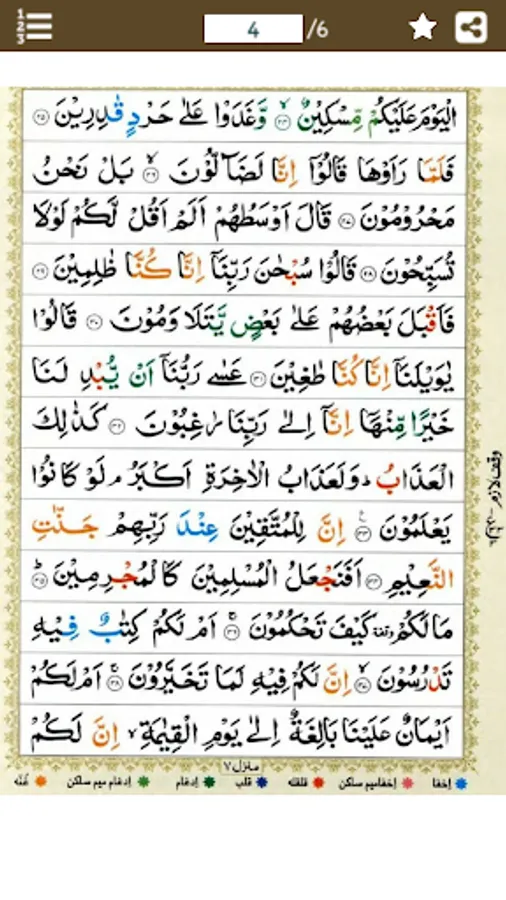 4 /6
الْيَوْمَ عَلَيْكُمْ مِّسْكِيْنٌ ۙ﴿۲۴﴾ وَّغَدَوْا عَلٰى حَرْدٍ قٰدِرِيْنَ ﴿۲۵﴾
فَلَمَّا رَاَوْهَا قَالُوْۤا اِنَّا لَضَآلُّوْنَ ۙ﴿۲۶﴾ بَلْ نَحْنُ
مَحْرُوْمُوْنَ ﴿۲۷﴾ قَالَ اَوْسَطُهُمْ اَلَمْ اَقُلْ لَّكُمْ لَوْلَا
تُسَبِّحُوْنَ ﴿۲۸﴾ قَالُوْا سُبْحٰنَ رَبِّنَاۤ اِنَّا كُنَّا ظٰلِمِيْنَ ﴿۲۹﴾
فَاَقْبَلَ بَعْضُهُمْ عَلٰى بَعْضٍ يَّتَلَاوَمُوْنَ ﴿۳۰﴾ قَالُوْا
يٰوَيْلَنَاۤ اِنَّا كُنَّا طٰغِيْنَ ﴿۳۱﴾ عَسٰى رَبُّنَاۤ اَنْ يُّبْدِلَنَا
خَيْرًا مِّنْهَاۤ اِنَّاۤ اِلٰى رَبِّنَا رٰغِبُوْنَ ﴿۳۲﴾ كَذٰلِكَ
الْعَذَابُ ؕ وَلَعَذَابُ الْاٰخِرَةِ اَكْبَرُ ۘ لَوْ كَانُوْا
يَعْلَمُوْنَ ﴿۳۳﴾ اِنَّ لِلْمُتَّقِيْنَ عِنْدَ رَبِّهِمْ جَنّٰتِ
النَّعِيْمِ ﴿۳۴﴾ اَفَنَجْعَلُ الْمُسْلِمِيْنَ كَالْمُجْرِمِيْنَ ؕ﴿۳۵﴾
مَا لَكُمْ ٝ كَيْفَ تَحْكُمُوْنَ ۚ﴿۳۶﴾ اَمْ لَكُمْ كِتٰبٌ فِيْهِ
تَدْرُسُوْنَ ۙ﴿۳۷﴾ اِنَّ لَكُمْ فِيْهِ لَمَا تَخَيَّرُوْنَ ۚ﴿۳۸﴾ اَمْ لَكُمْ
اَيْمَانٌ عَلَيْنَا بَالِغَةٌ اِلٰى يَوْمِ الْقِيٰمَةِ ۙ اِنَّ لَكُمْ
وقف لازم
منزل ۷
إخفا إخفا ميم ساكن قلقله قلب إدغام إدغام ميم ساكن غُنّه